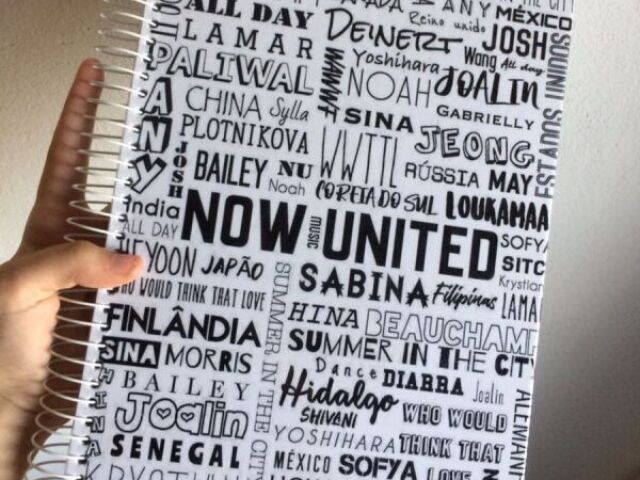 ALL DAY
ANY
MÉXICO
Reino unido
LAMAR
DEINERT
JOSH
Wang
All day
PALIWAL
Yoshihara
NOAH
JOALIN
CHINA
Sylla
GABRIELLY
SINA
ANY
PLOTNIKOVA
WWTTL
JEONG
JOSH
BAILEY
NU
RÚSSIA
MAY
Noah
COREIA DO SUL
LOUKAMAA
India
NOW UNITED
music
ALL DAY
SOFYA
HEYOON
JAPÃO
SITC
SABINA
Filipinas
Krystian
WHO WOULD THINK THAT LOVE
LAMA
FINLÂNDIA
HINA
BEAUCHAMP
SUMMER IN THE CITY
SINA
MORRIS
SUMMER IN THE CITY
Dance
DIARRA
Joalin
BAILEY
Hidalgo
SHIVANI
WHO WOULD
Joalin
HINA
YOSHIHARA
THINK THAT
ALEMAN
SENEGAL
MÉXICO
SOFYA
LOVE